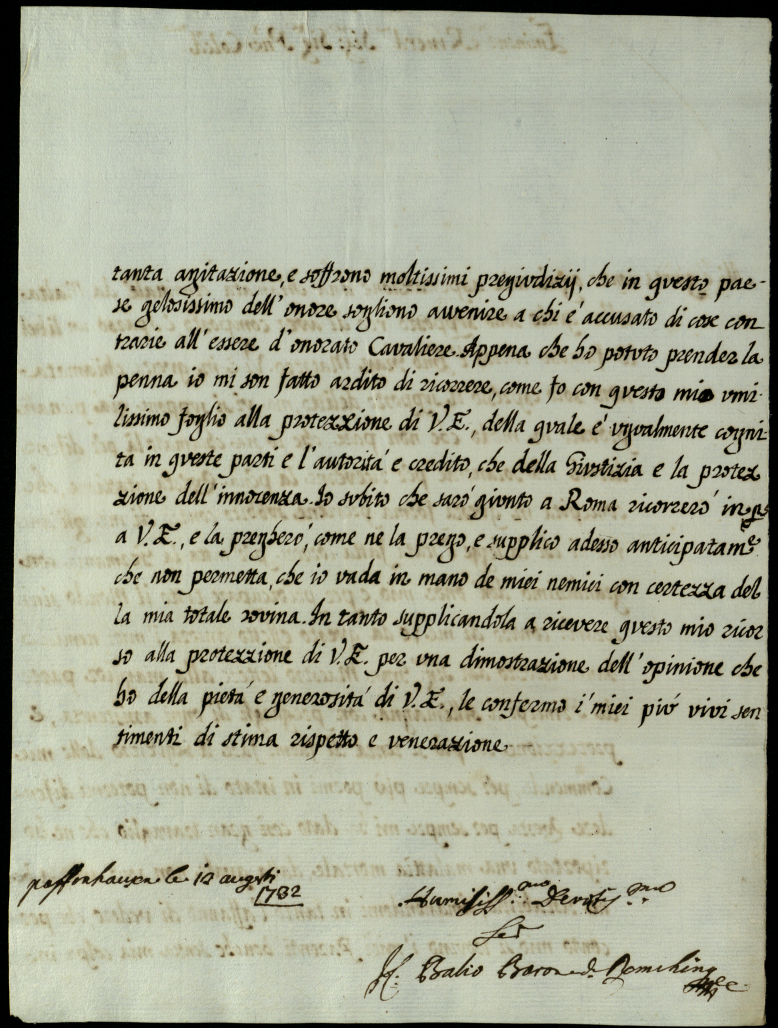 tanta agitazione, e soffrono moltissimi pregiudizij, che in questo pae-
se gelosissimo dell'onore sogliono avvenire a chi e' accusato di cose con
trarie all'essere d'onorato Cavaliere. Appena che ho potuto prender la
penna io mi son fatto ardito di ricorrere, come fo con questo mio umi-
lissimo foglio alla protezzione di V.E., della quale e' ugualmente cogni-
ta in queste parti e l'autoritá e credito, che della Giustizia e la protez
zione dell'innocenza. Io subito che saró giunto a Roma ricorreró in
a V.E., e la pregheró, come ne la prego, e supplico adesso anticipatam.e
che non permetta, che io vada in mano de miei nemici con certezza del
la mia totale rovina. In tanto supplicandola a ricevere questo mio ricor
so alla protezzione di V.E. per una dimostrazione dell'opinione che
ho della pietá e generositá di V.E., le confermo i miei piú vivi sen
timenti di stima rispetto e venerazione
paffenhausen le 12 augusti
1732
Humilissi.mo Devoti.mo
Ser
F. Balio Barone d.